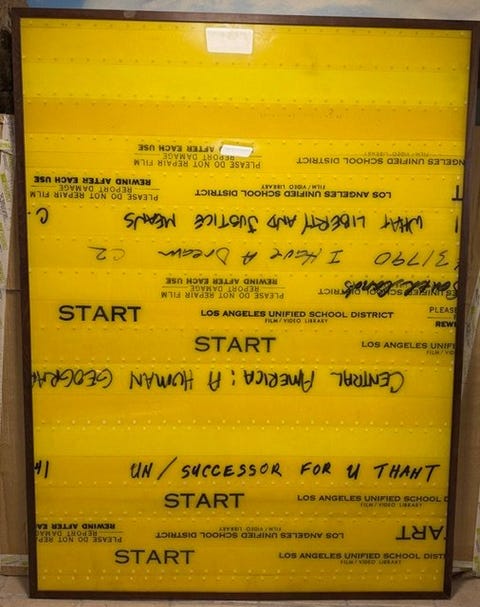 LOS ANGELES UNIFIED SCHOOL DISTRICT
FILM / VIDEO LIBRARY
PLEASE DO NOT REPAIR FILM
REPORT DAMAGE
REWIND AFTER EACH USE
LOS ANGELES UNIFIED SCHOOL DISTRICT
FILM / VIDEO LIBRARY
PLEASE DO NOT REPAIR FILM
REPORT DAMAGE
REWIND AFTER EACH USE
WHAT LIBERTY AND JUSTICE MEANS C.
31790 I Have A Dream C2
UNIFIED SCHOOL DISTRICT
PLEASE DO NOT REPAIR FILM
REPORT DAMAGE
REWIND AFTER EACH USE
START LOS ANGELES UNIFIED SCHOOL DISTRICT PLEASE
FILM / VIDEO LIBRARY REWI
START LOS ANGELES UNIF
FILM / V
CENTRAL AMERICA: A HUMAN GEOGRA
41 UN / SUCCESSOR FOR U THANT
START LOS ANGELES UNIFIED SCHOOL D
FILM / VIDEO LIBRARY
ART LOS ANGELES UNIFIED SCHOOL DISTRICT
FILM / VIDEO LIBRARY
PLEASE DO NOT REPAIR FILM
REPORT DAMAGE
REWIND AFTER EA
START LOS ANGELES UNIFIED SCHOOL DIST
FILM / VIDEO LIBRARY